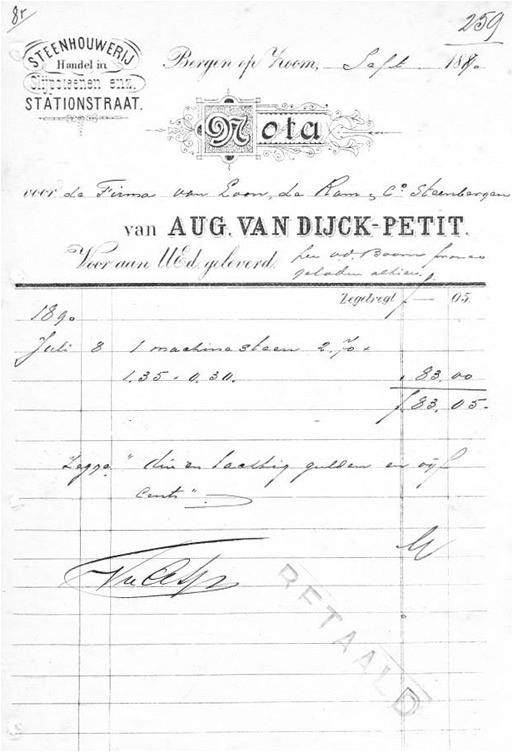 8r
259
STEENHOUWERIJ
Handel in
Slijpsteenen enz.
STATIONSTRAAT.
Bergen op Zoom, Sept 1890
Nota
voor de Firma van Loon, de Ram & Co Steenbergen
van AUG. VAN DIJCK-PETIT.
Voor aan UEd. geleverd. per v.d. Boom franco
geladen alhier.
Zegelregt f — 05.
1890
Juli 8 1 machinesteen 2.70 ×
1.35 × 0.30. " 83.00
f 83.05.
Zegge " drie en tachtig gulden en vijf
cents"
BETAALD